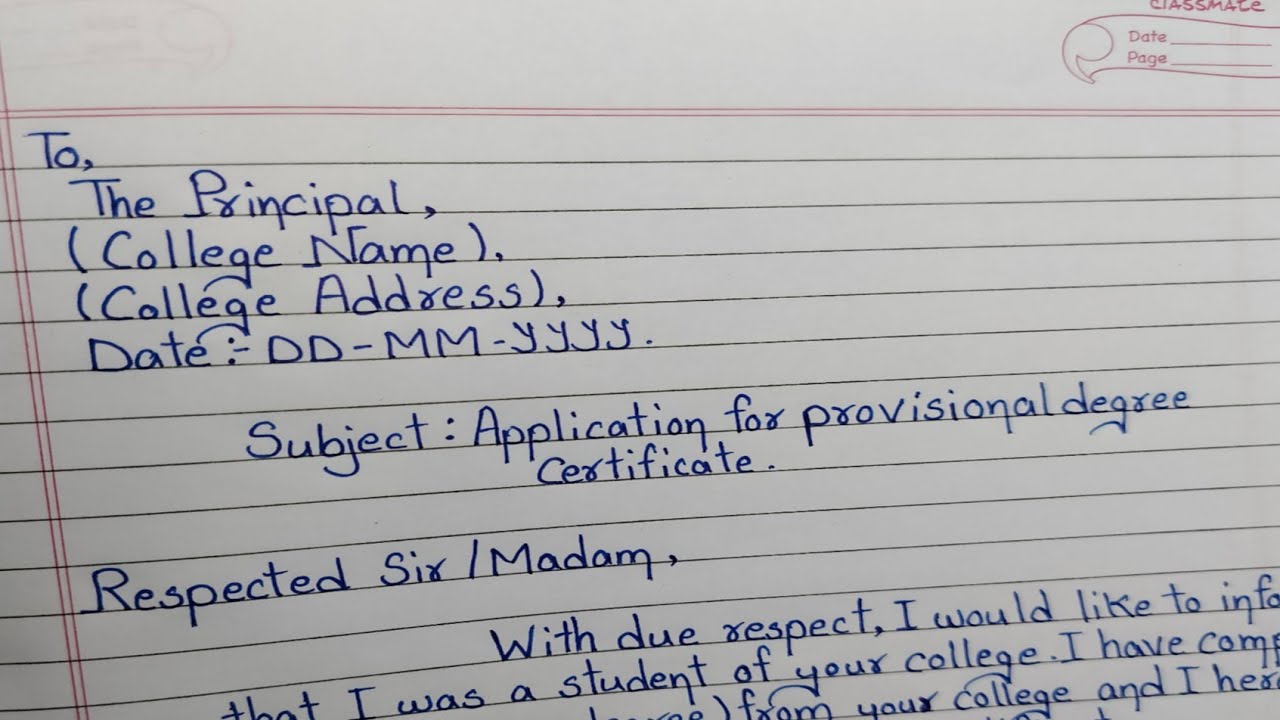 CLASSMATE
Date
Page
To,
The Principal,
(College Name),
(College Address),
Date:- DD-MM-YYYY.
Subject: Application for provisional degree
certificate.
Respected Sir/Madam,
With due respect, I would like to info
that I was a student of your college. I have comp
) from your college and I here